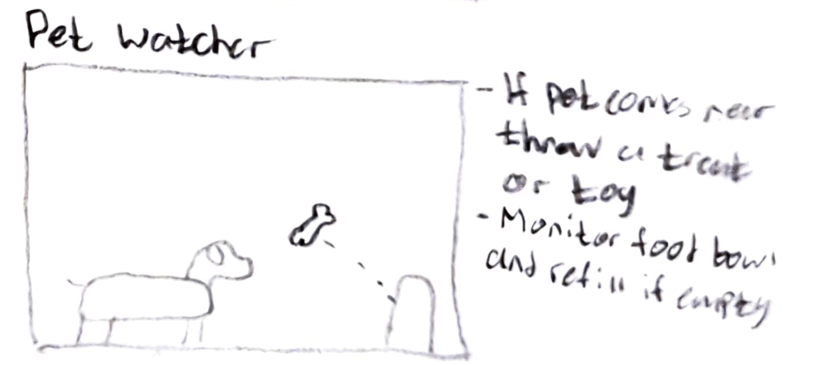 Pet Watcher
- If pet comes near
throw a treat
or toy
- Monitor food bowl
and refill if empty